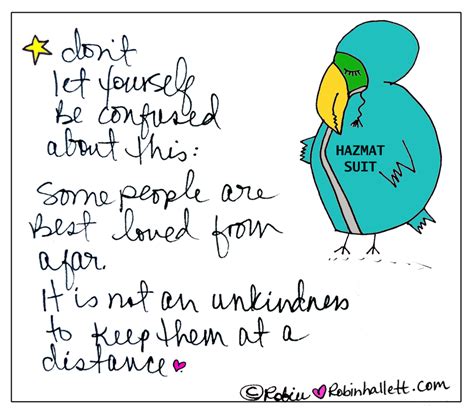 don't
let yourself
Be confused
about this:
Some people are
Best loved from
afar.
It is not an unkindness
to keep them at a
distance
HAZMAT
SUIT
©Robin Robinhallett.com